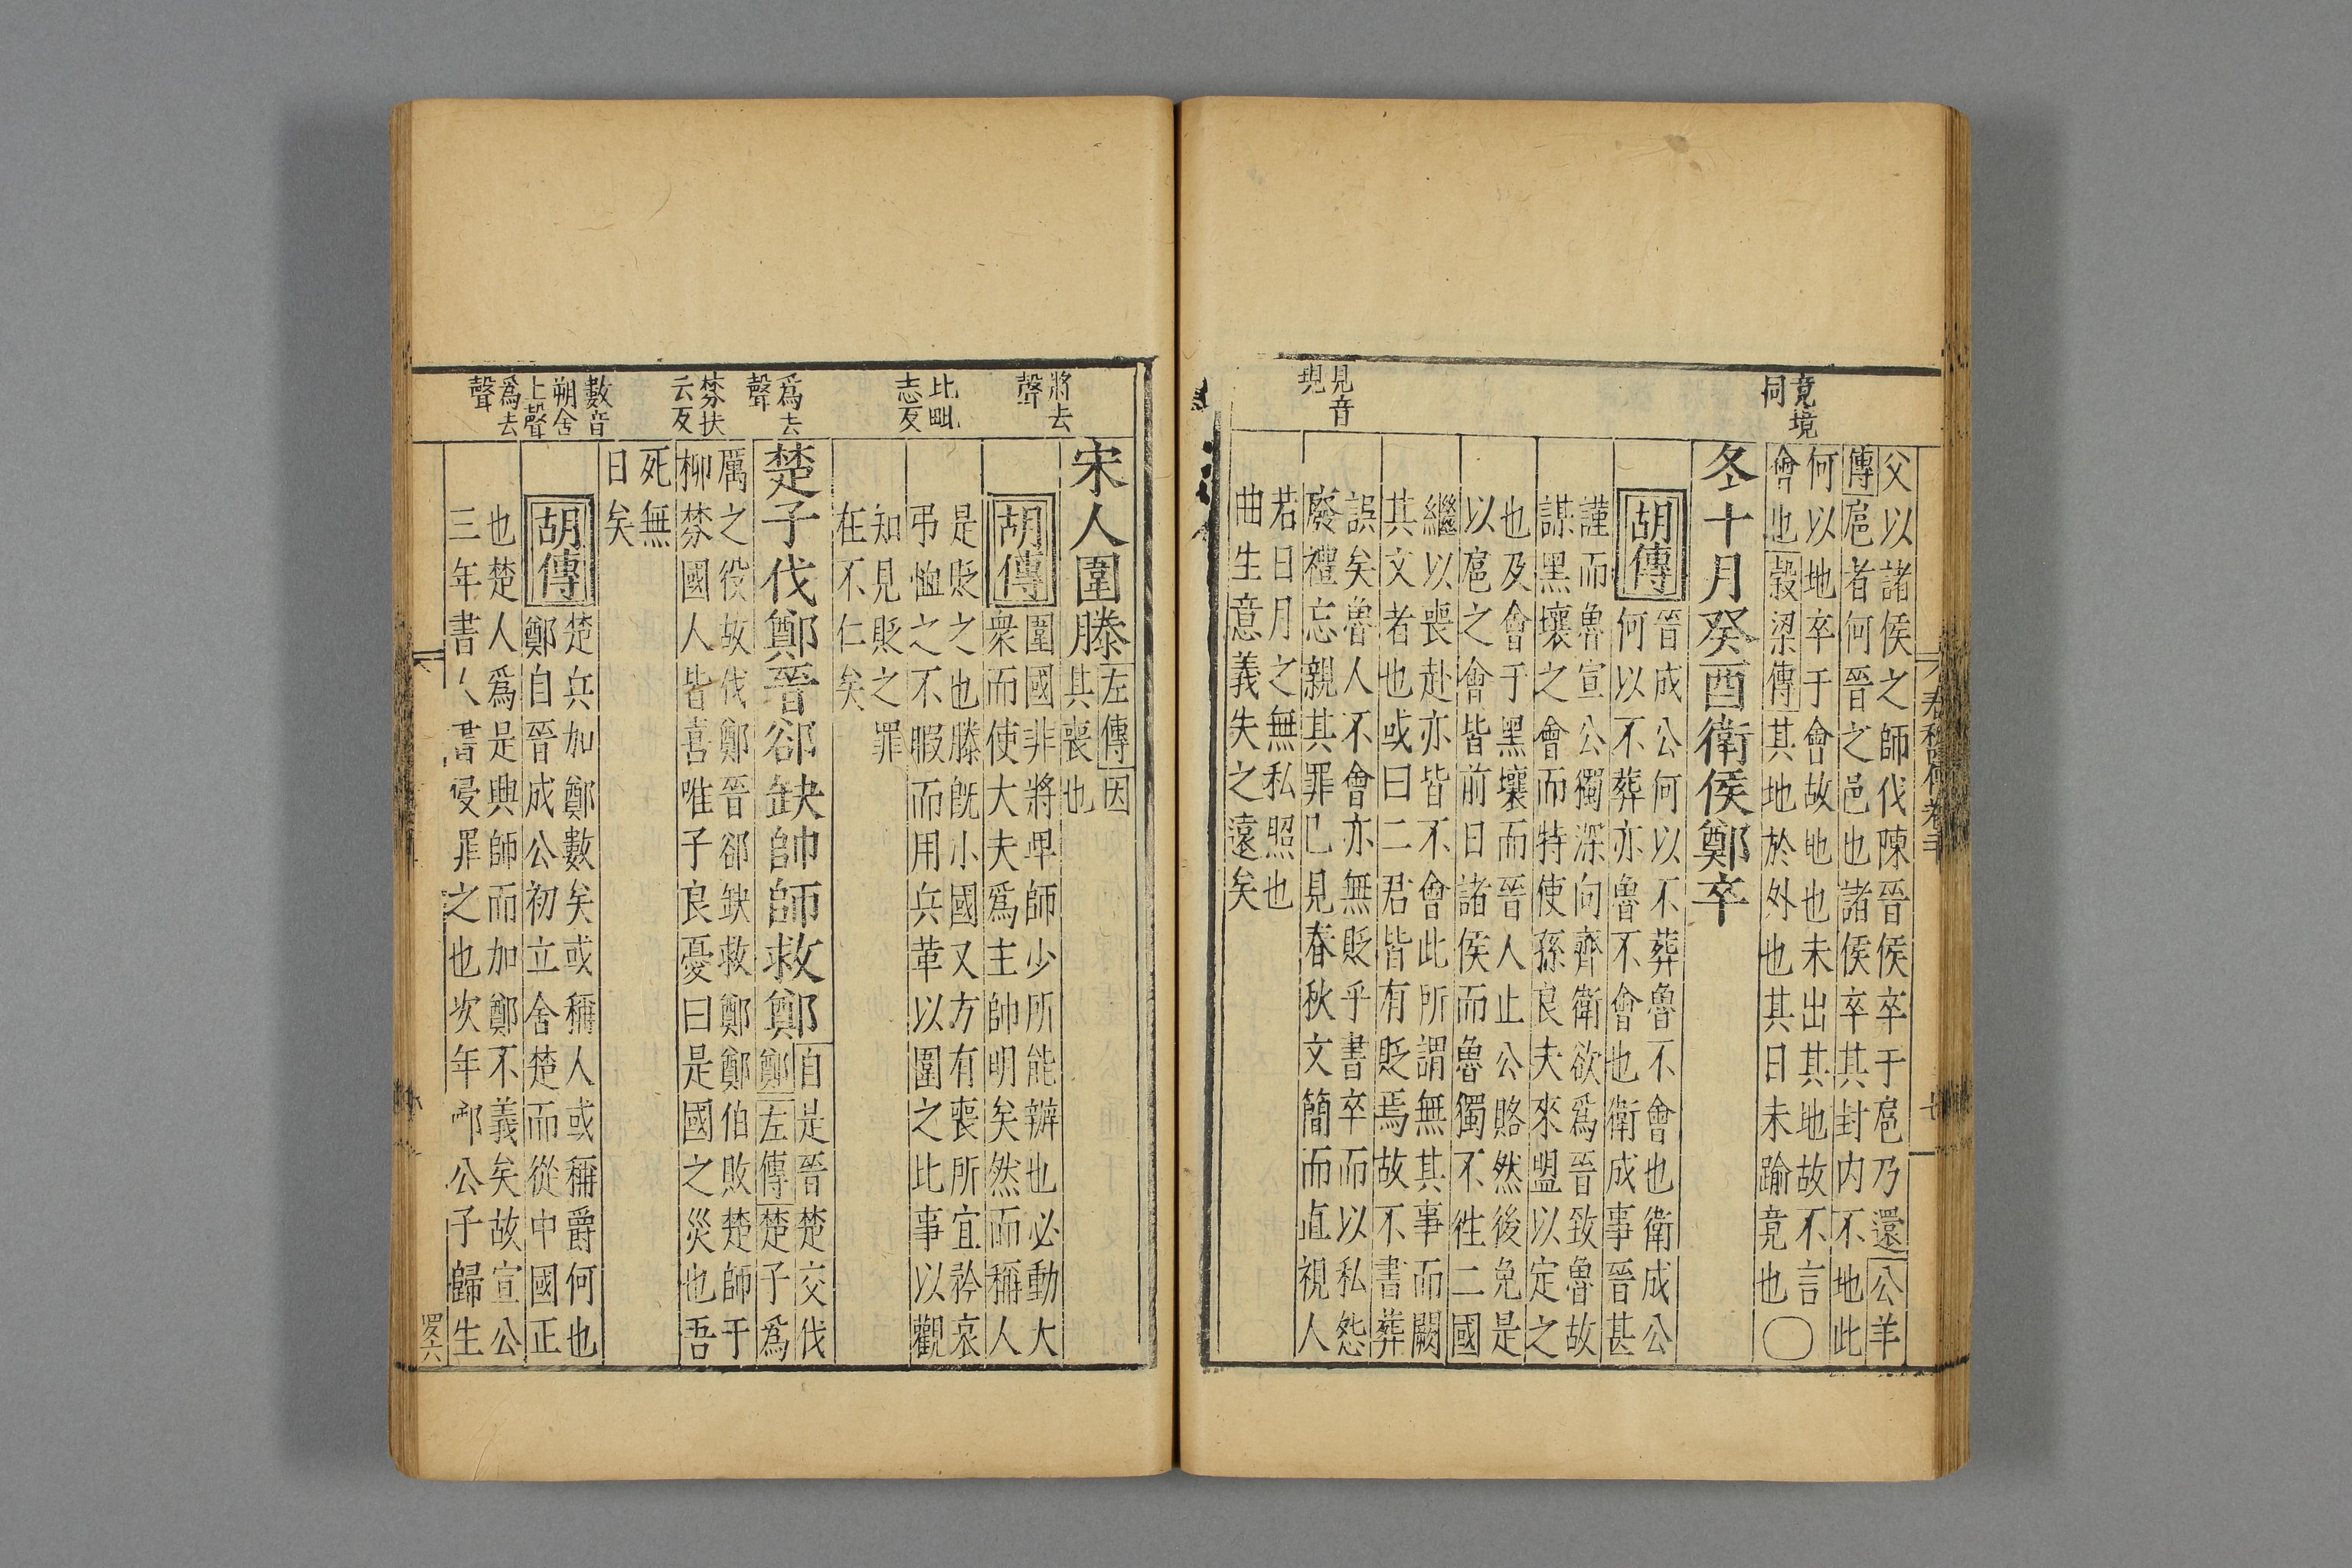 父以諸侯之師伐陳晉侯卒于扈乃還公羊
傳扈者何晉之邑也諸侯卒其封内不地此
何以地卒于會故地也未出其地故不言
會也穀梁傳其地於外也其日未踰竟也〇
竟境
同
冬十月癸酉衛侯鄭卒
胡傳
晉成公何以不葬魯不會也衛成公
何以不葬亦魯不會也衛成事晉甚
謹而魯宣公獨深向齊衛欲爲晉致魯故
謀黑壤之會而特使孫良夫來盟以定之
也及會于黑壤而晉人止公賂然後免是
以扈之會皆前日諸侯而魯獨不徃二國
繼以喪赴亦皆不會此所謂無其事而闕
其文者也或曰二君皆有貶焉故不書葬
誤矣魯人不會亦無貶乎書卒而以私怨
廢禮忘親其罪已見春秋文簡而直視人
若日月之無私照也
曲生意義失之遠矣
見音
現
宋人圍滕左傳因
其喪也
胡傳
圍國非將卑師少所能辦也必動大
衆而使大夫爲主帥明矣然而稱人
是貶之也滕旣小國又方有喪所宜矜哀
弔恤之不暇而用兵革以圍之比事以觀
知見貶之罪
在不仁矣
將去
聲
比毗
志反
楚子伐鄭晉郤缺帥師救鄭
自是晉楚交伐
鄭左傳楚子爲
厲之役故伐鄭晉郤缺救鄭鄭伯敗楚師于
柳棼國人皆喜唯子良憂曰是國之災也吾
死無
日矣
爲去
聲
棼扶
云反
胡傳
楚兵加鄭數矣或稱人或稱爵何也
鄭自晉成公初立舍楚而從中國正
也楚人爲是興師而加鄭不義矣故宣公
三年書人書侵罪之也次年公子歸生
數音
朔舍
上聲
爲去
聲